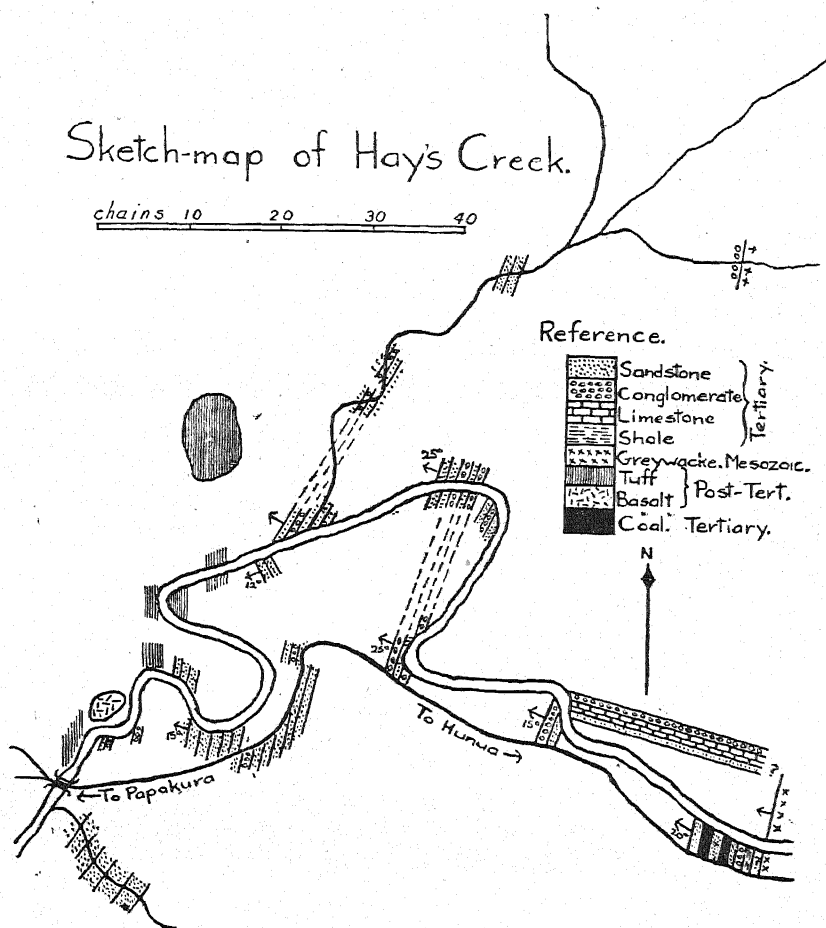 Sketch-map of Hay's Creek.
chains 10 20 30 40
Reference.
Sandstone
Conglomerate
Limestone
Shale
Tertiary.
Greywacke. Mesozoic.
Tuff
Basalt
Post-Tert.
Coal. Tertiary.
N
25°
12°
25°
15°
To Hunua →
15°
?
← To Papakura
20°